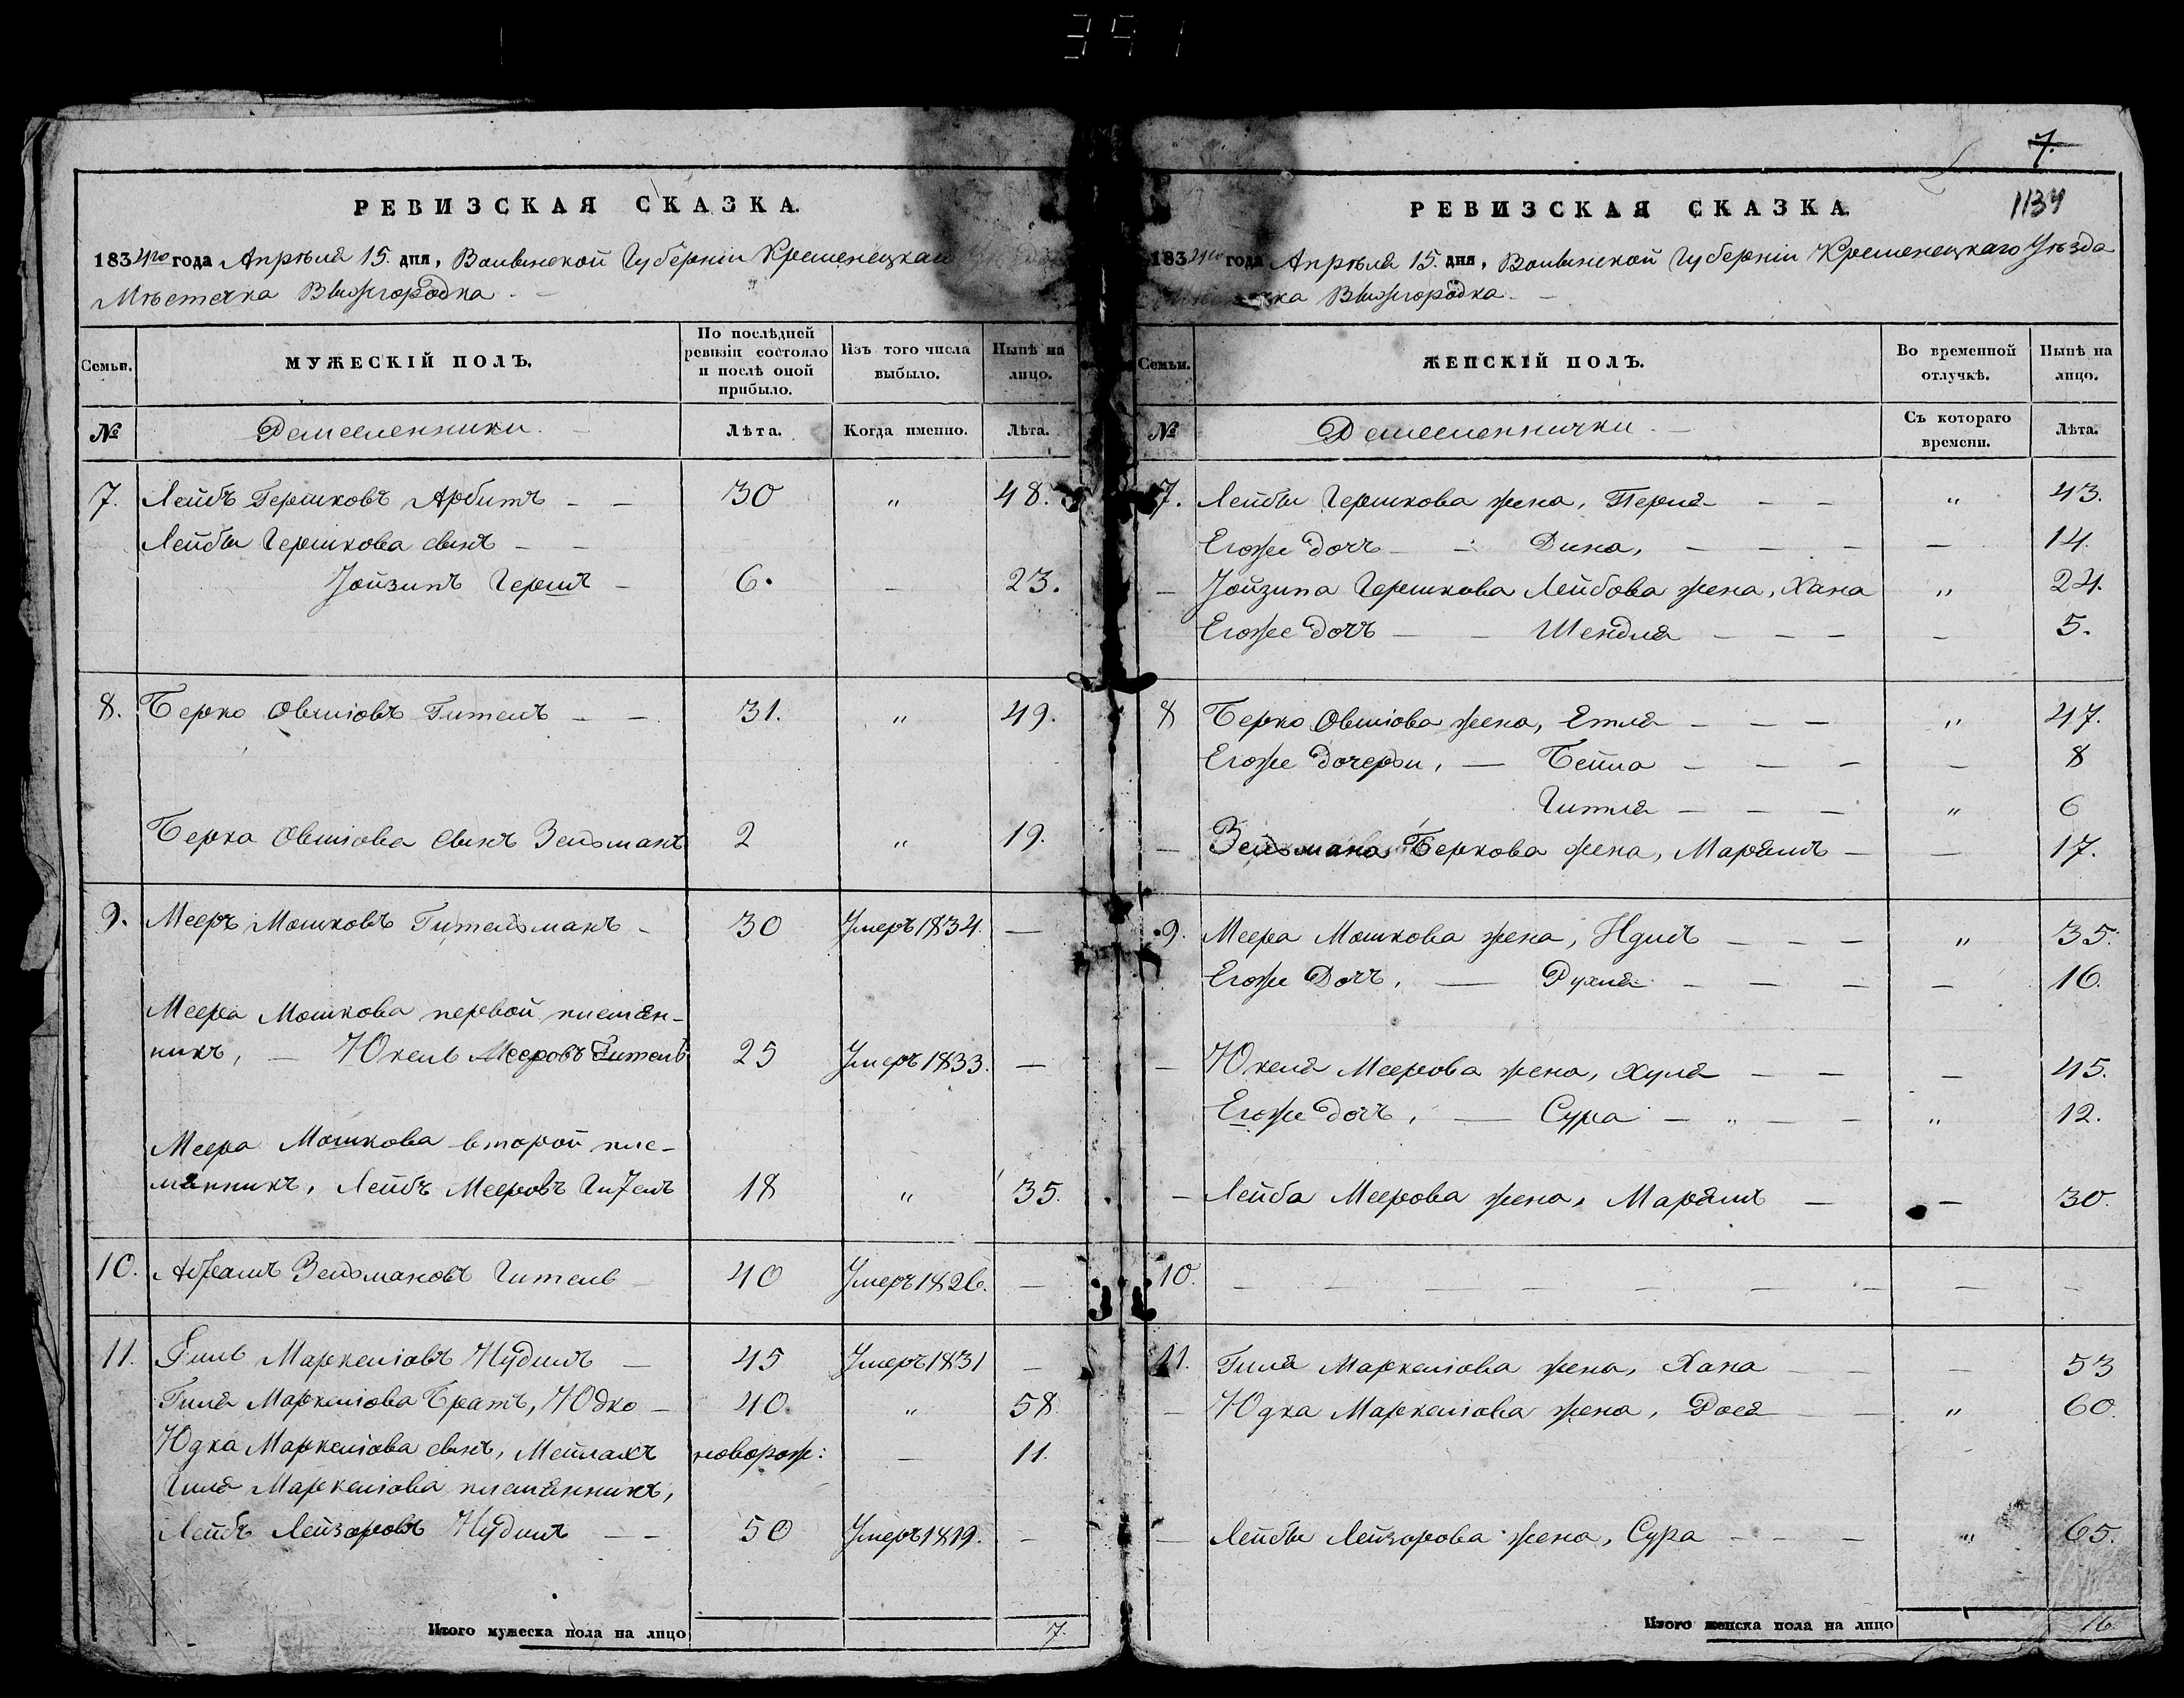 391
РЕВИЗСКАЯ СКАЗКА.
1834го года Апрѣля 15. дня, Волынской Губерніи Кременецкаго Уѣзда
Мѣстечка Вышгородка
Семьи.
МУЖЕСКІЙ ПОЛЪ.
По послѣдней ревизіи состояло и послѣ оной прибыло.
Изъ того числа выбыло.
Нынѣ на лицо.
№
Ремесленники.
Лѣта.
Когда именно.
Лѣта.
7. Лейбъ Гершковъ Арбитъ — — 30 " 48.
Лейбы Гершкова сынъ — —
Іойзипъ Гершъ — 6. — 23.
8. Берко Овшіовъ Гительъ — — 31. " 49.
Берка Овшіова сынъ Зельманъ 2 " 19.
9. Мееръ Мошковъ Гительманъ — 30 Умеръ 1834. —
Меера Мошкова первой племян-
никъ, — Юкель Мееровъ Гитель 25 Умеръ 1833. —
Меера Мошкова второй пле-
мянникъ, Лейбъ Мееровъ Гительъ 18 " 35.
10. Абрамъ Зельмановъ Гитель — 40 Умеръ 1826. —
11. Гиль Маркеліовъ Нудилъ — 45 Умеръ 1831 —
Гиля Маркеліова Братъ, Юдко — 40. " 58.
Юдка Маркеліова сынъ, Мейлахъ новорож: — 11.
Гиля Маркеліова племянникъ,
Лейбъ Лейзоровъ Нудилъ — — 50 Умеръ 1819. —
Итого мужеска пола на лицо 7.
7.
1134
РЕВИЗСКАЯ СКАЗКА.
1834го года Апрѣля 15. дня, Волынской Губерніи Кременецкаго Уѣзда
Мѣстечка Вышгородка. —
Семьи.
ЖЕНСКІЙ ПОЛЪ.
Во временной отлучкѣ.
Нынѣ на лицо.
№
Ремесленнички. —
Съ котораго времени.
Лѣта.
7. Лейбы Гершкова жена, Перля — — " 43.
Егоже дочь — — Дина, — — — — 14.
— Іойзипа Гершкова Лейбова жена, Хана " 24.
Егоже дочь — — Шендля — — — — 5.
8 Берко Овшіова жена, Етля — — — " 47.
Егоже дочери, — Бейла — — — — 8
Гитля — — — " 6
— Зельмана Беркова жена, Марямъ — — 17.
9. Меера Мошкова жена, — — — " 35.
Егоже Дочь, — Рухля — — — — 16.
— Юкеля Меерова жена, Хуля — — — 45.
Егоже дочь, — Сура — " — — " 12.
— Лейба Меерова жена, Марямъ — — 30.
10. — — — — — — — — —
11. Гиля Маркеліова жена, Хана — — — 53
— Юдка Маркеліова жена, Рося — — " 60.
— Лейбы Лейзорова жена, Сура — — — " 65.
Итого женска пола на лицо 16.